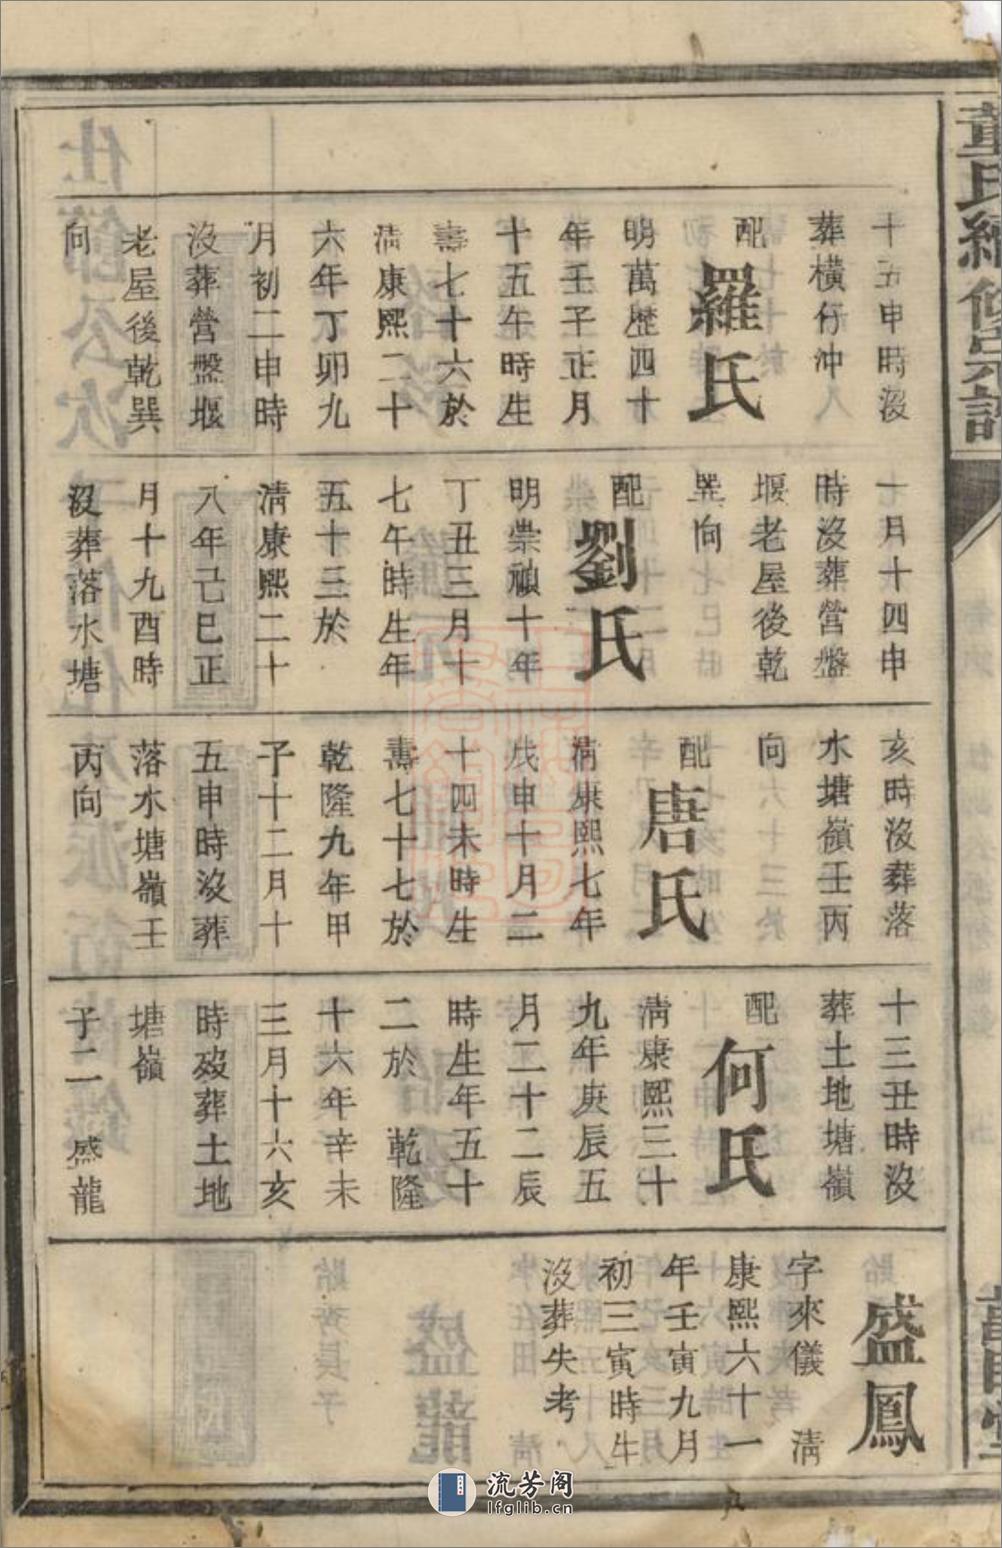 氏續修宗譜
十五申時沒
葬橫仃沖
配
羅氏
明萬歷四十
年壬子正月
十五午時生
壽七十六於
清康熙二十
六年丁卯九
月初二申時
沒葬營盤堰
老屋後乾巽
向
一月十四申
時沒葬營盤
堰老屋後乾
巽向
配
劉氏
明崇禎十年
丁丑三月十
七午時生年
五十三於
清康熙二十
八年己巳正
月十九酉時
沒葬落水塘
亥時沒葬落
水塘嶺壬丙
向
配
唐氏
清康熙七年
戊申十月二
十四未時生
壽七十七於
乾隆九年甲
子十二月十
五申時沒葬
落水塘嶺壬
丙向
十三丑時沒
葬土地塘嶺
配
何氏
清康熙三十
九年庚辰五
月二十二辰
時生年五十
二於 乾隆
十六年辛未
三月十六亥
時歿葬土地
塘嶺
子二 盛龍
盛鳳
字來儀 清
康熙六十一
年壬寅九月
初三寅時生
沒葬失考
九
流芳阁
lfglib.com